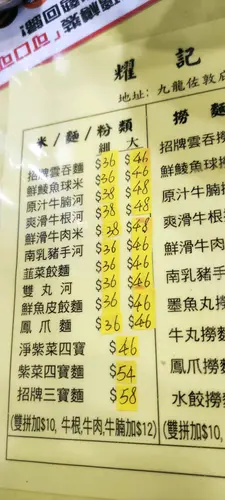 耀記
地址：九龍佐敦
米/麵/粉類
細 大
招牌雲吞麵 $36 $46
鮮鯪魚球米 $36 $46
原汁牛腩河 $38 $48
爽滑牛根河 $38 $48
鮮滑牛肉米 $38 $48
南乳豬手河 $36 $46
韮菜餃麵 $36 $46
雙丸河 $36 $46
鮮魚皮餃麵 $36 $46
鳳爪麵 $36 $46
淨紫菜四寶 $46
紫菜四寶麵 $54
招牌三寶麵 $58
(雙拼加$10, 牛根,牛肉,牛腩加$12)
撈麵
招牌雲吞
鮮鯪魚球
原汁牛腩撈
爽滑牛根
鮮滑牛肉
南乳豬手
墨魚丸撈
牛丸撈麵
鳳爪撈麵
水餃撈麵
(雙拼加$10,